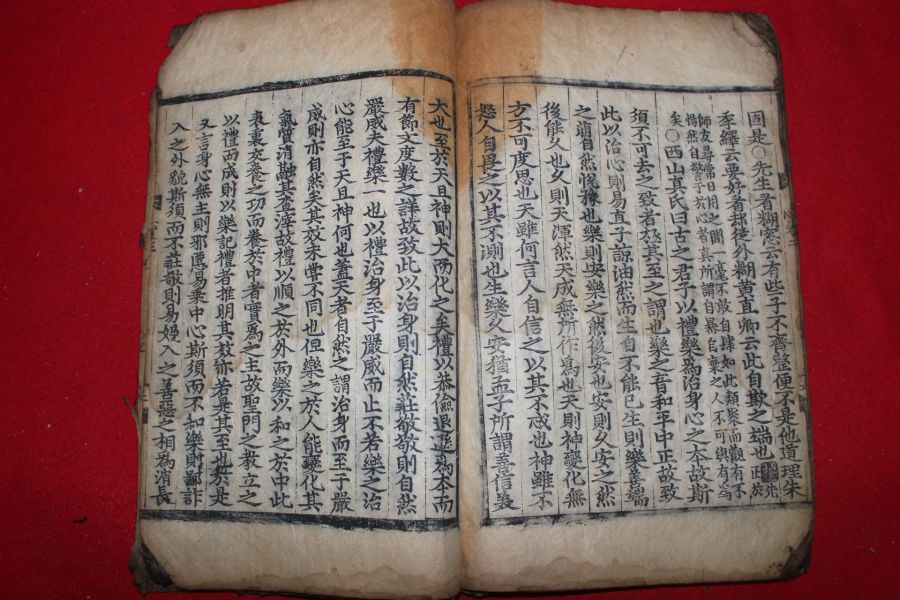 固是○先生看糊窓云有些子不齊整便不是他道理朱
季繹云要好看却從外糊黄直卿云此自欺之端也
正於
先
師友尋常日用之間一毫不敢自肆如此類聚而觀有不
惕然自警於心者真所謂自暴自棄之人不可與有爲
矣○西山真氏曰古之君子以禮樂爲治身心之本故斯
須不可去之致者極其至之謂也樂之音和平中正故致
此以治心則易直子諒油然而生自不能已生則樂善端
之萌自然悅豫也樂則安樂之然後安也安則久安之然
後能久也久則天渾然天成無所作爲也天則神變化無
方不可度思也天雖何言人自信之以其不忒也神雖不
怒人自畏之以其不測也生樂久安猶孟子所謂善信美
大也至於天且神則大而化之矣禮以恭儉退遜爲本而
有節文度數之詳故致此以治身則自然莊敬敬則自然
嚴威夫禮樂一也以禮治身至于嚴威而止不若樂之治
心能至于天且神何也蓋天者自然之謂治身而至于嚴
成則亦自然矣其效未嘗不同也但樂之於人能變化其
氣質消融其査滓故禮以順之於外而樂以和之於中此
表裏交養之功而養於中者實爲之主故聖門之教立之
以禮而成則以樂記禮者推明其效亦若是其至也於是
又言身心無主則邪慝易乘中心斯須而不和樂則鄙詐
入之外貌斯須而不莊敬則易嫚入之善惡之相爲消長